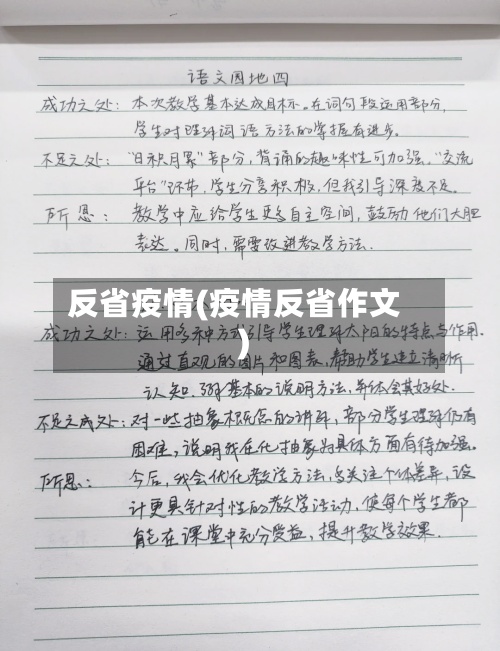 语文园地四
成功之处：本次教学基本达成目标。在词句段运用部分，
学生对理解词语方法的掌握有进步。
不足之处：“日积月累”部分，背诵的趣味性可加强，“交流
平台”环节，学生分享积极，但我引导深度不足。
所思：教学中应给学生更多自主空间，鼓励他们大胆
表达。同时，需要改进教学方法.
反省疫情(疫情反省作文
)
成功之处：运用多种方式引导学生理解太阳的特点与作用.
通过直观的图片和图表，帮助学生建立清晰
认知.了解基本的说明方法，并体会其好处.
不足之处：对一些抽象概念的讲解，部分学生理解仍有
困难，说明我在化抽象为具体方面有待加强。
所思：今后，我会优化教学方法，多关注个体差异，设
计更具针对性的教学活动，使每个学生都
能在课堂中充分受益，提升教学效果.